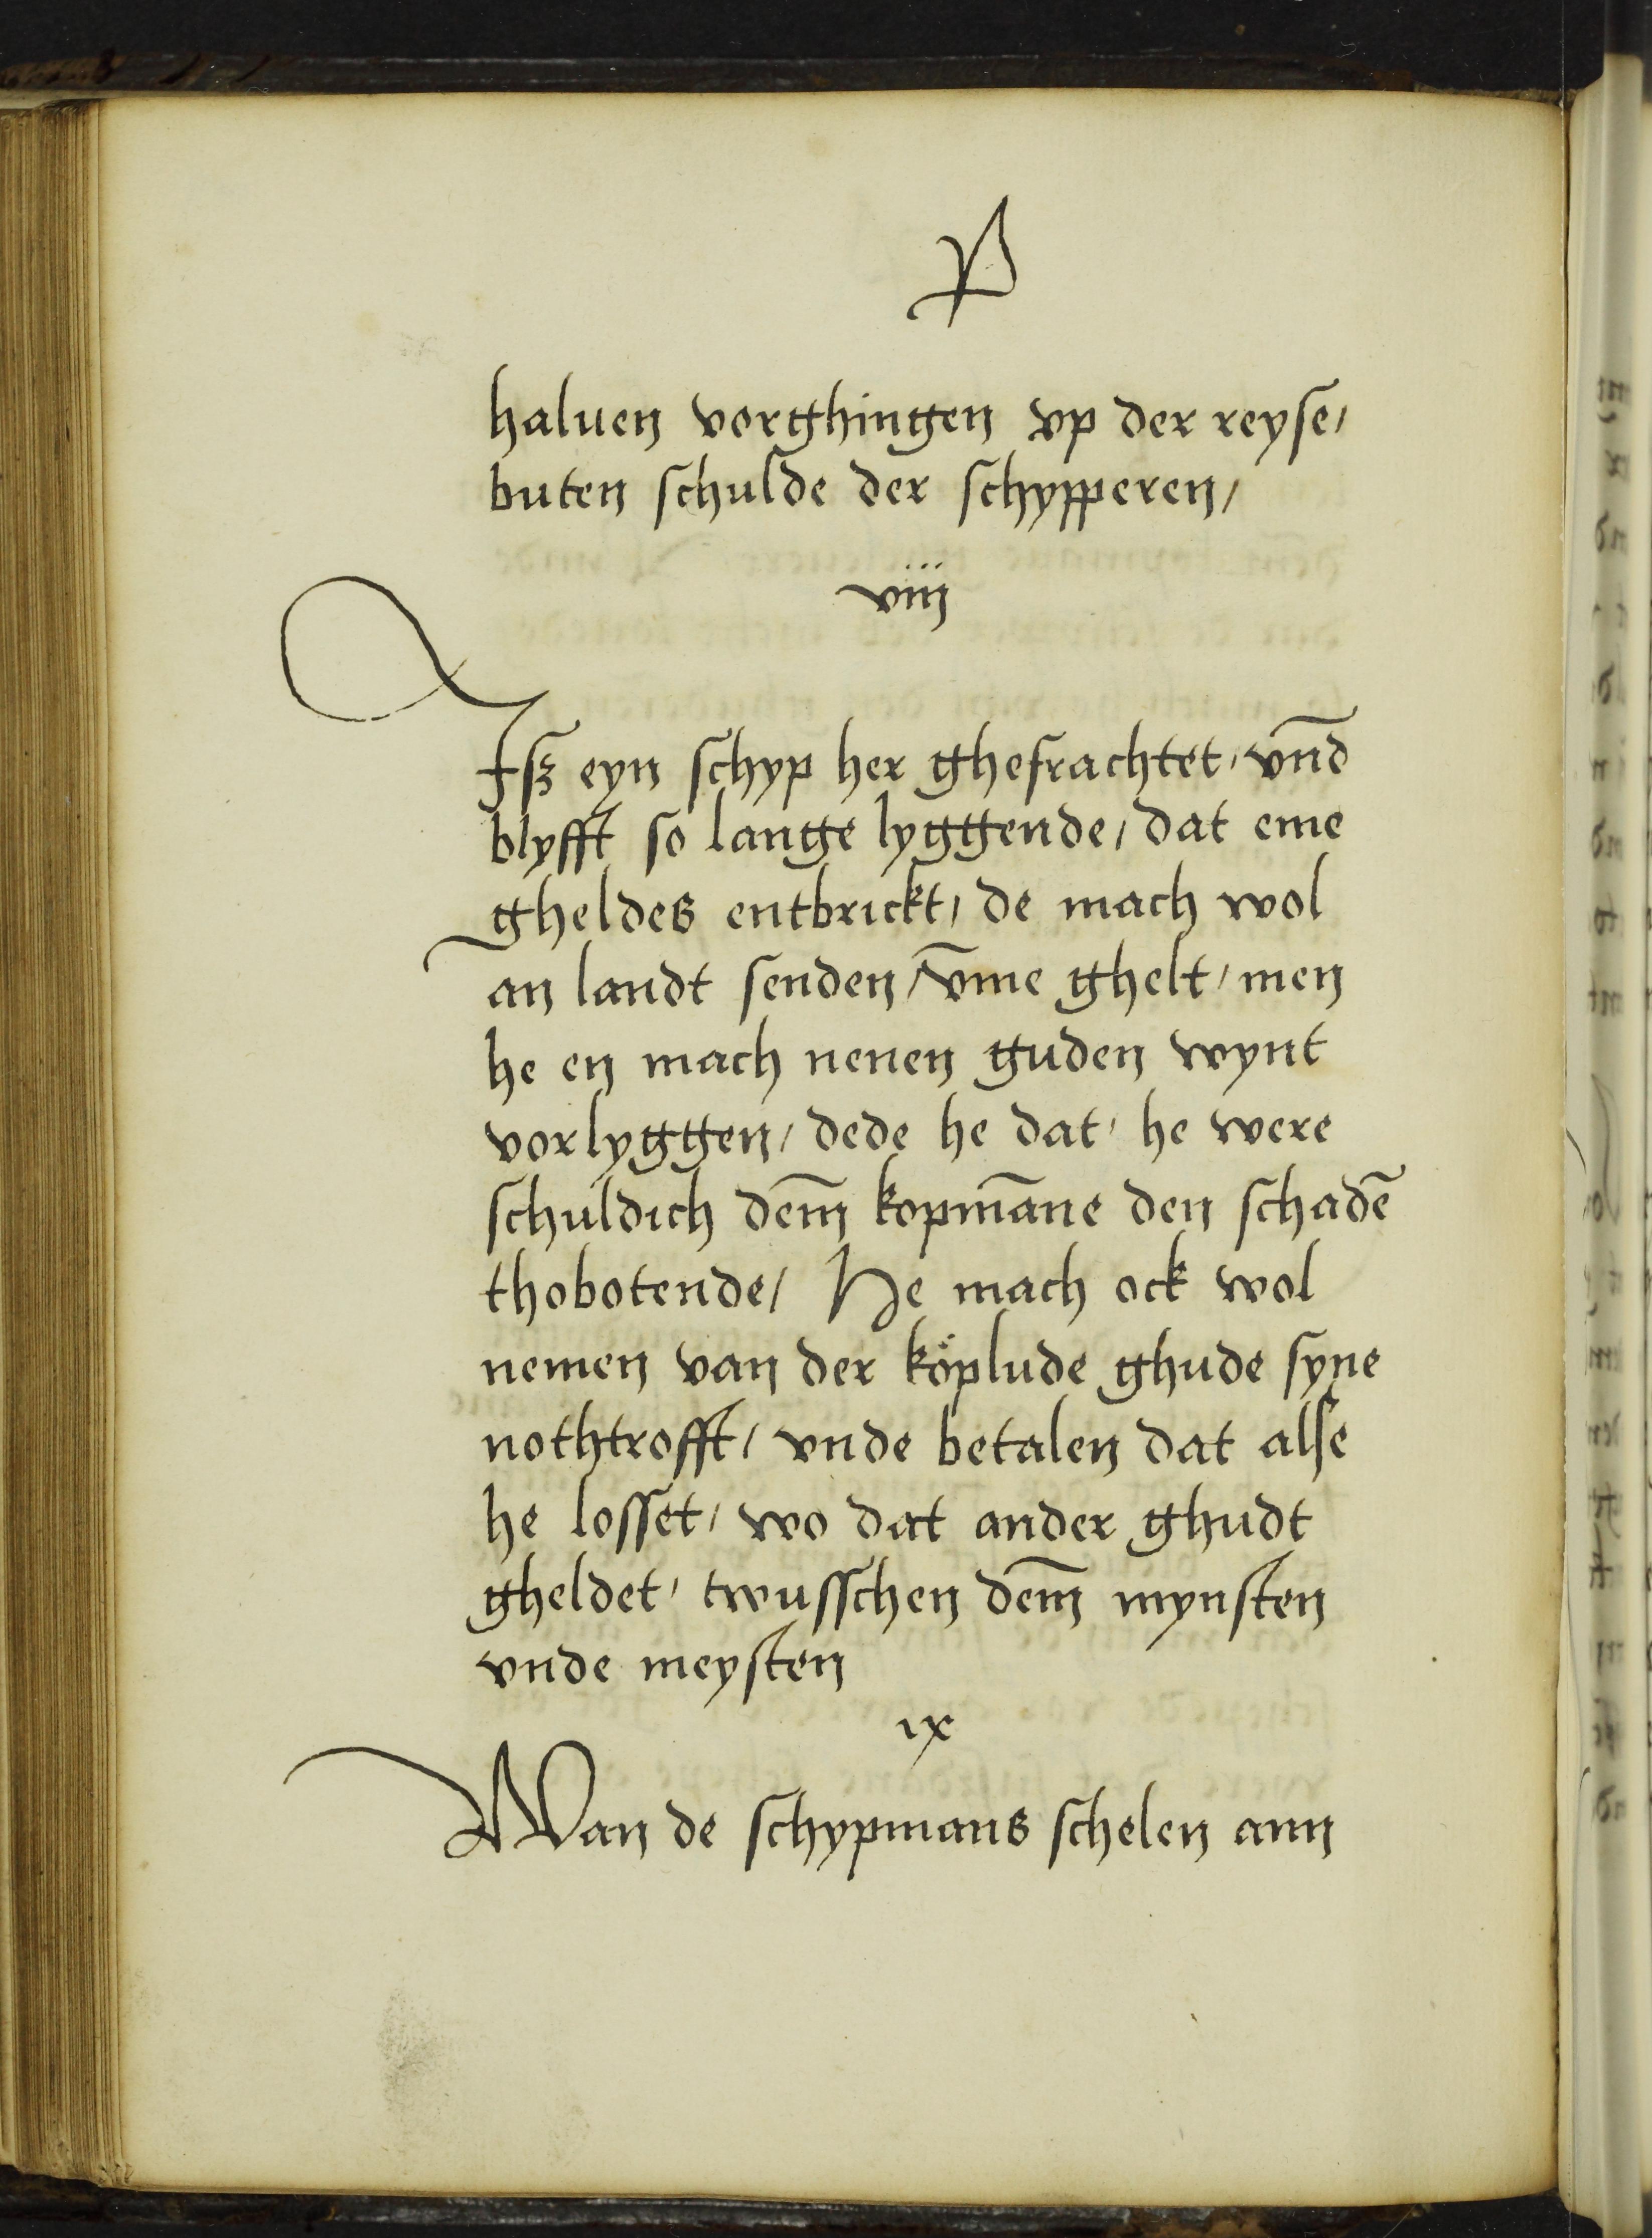 P
haluen vorghingen vp der reyse/
buten schulde der schypperen/
viij
Isz eyn schyp her ghefrachtet/ vn̄d
blyfft so lange lyggende/ dat eme
gheldes entbrickt/ de mach wol
an landt senden/ v̄me ghelt/ men
he en mach nenen guden wynt
vorlyggen/ dede he dat/ he were
schuldich dem̄ kopmāne den schadē
thobotende/ He mach ock wol
nemen van der köplude ghude syne
nothtrofft/ vnde betalen dat alse
he losset/ wo dat ander ghudt
gheldet/ twusschen dem̄ mynsten
vnde meysten
ix
Wan de schypmans schelen ann